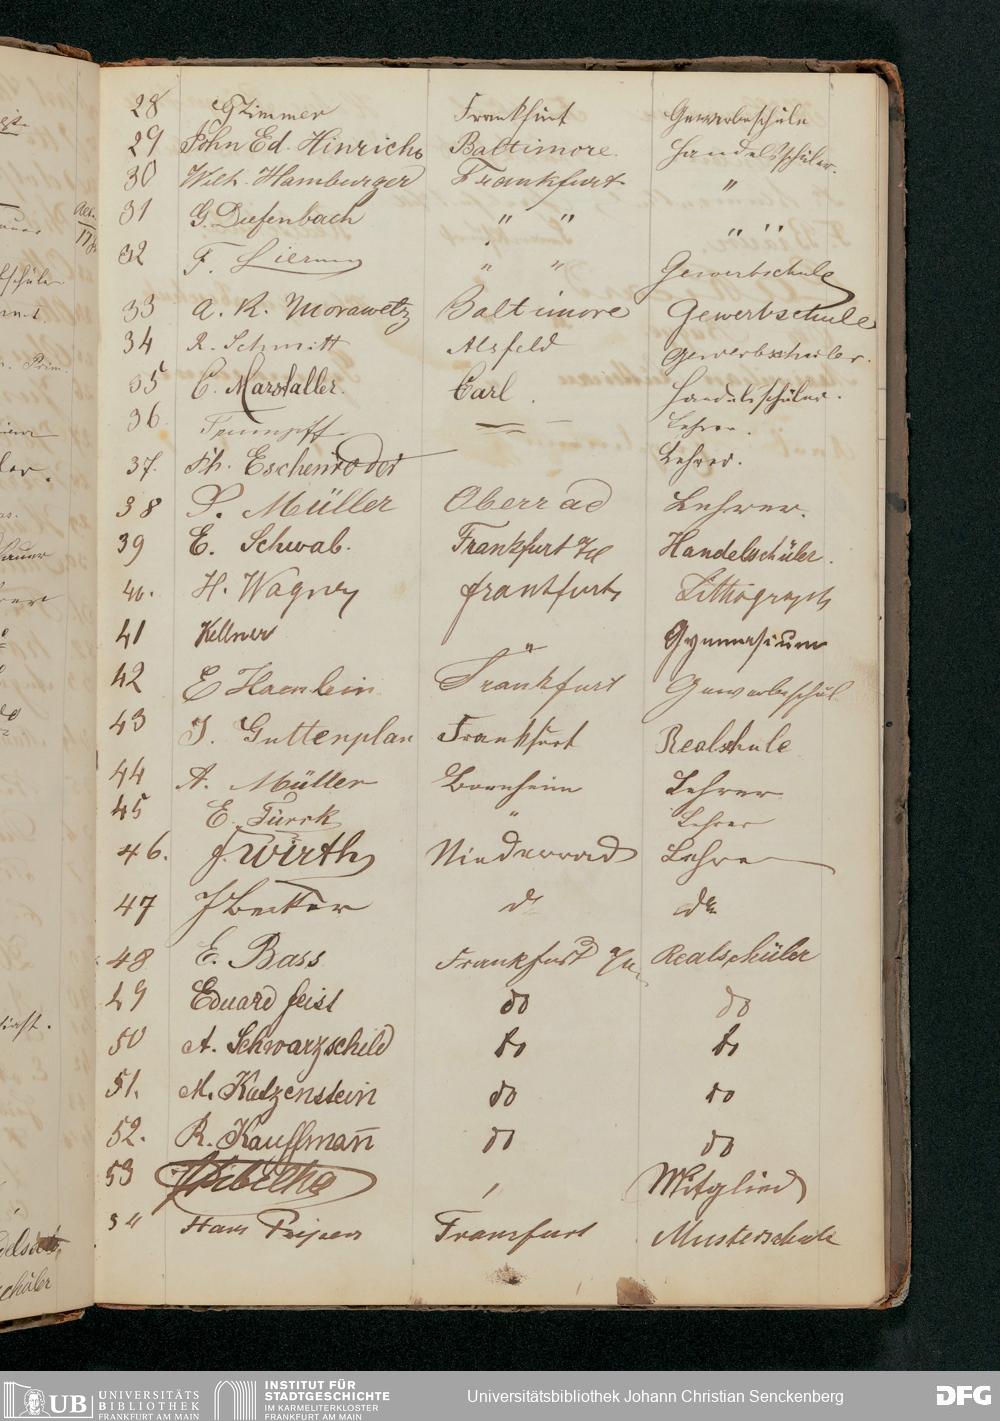 28 G Zimmer Frankfurt Gewerbeschule
29 John Ed. Hinrichs Baltimore. Handelsschüler.
30 Wilh. Hamburger Frankfurt "
31 G. Diefenbach " " " "
32 F. " " Gewerbschule
33 A. R. Morawetz Baltimore Gewerbschule
34 R. Schmitt Alsfeld Gewerbschüler.
35 C. Marstaller. Carl. Handelsschüler.
36 Lehrer.
37. Ph. Eschenröder Lehrer.
38 P. Müller Oberrad Lehrer.
39 E. Schwab. Frankfurt Handelschüler.
40. H. Wagner Frankfurt Lithograph
41 Kellner " Gymnasium
42 E Haenlein Frankfurt Gewerbeschül
43 J. Guttenplan Frankfurt Realschule
44 A. Müller Bornheim Lehrer
45 E. Türck " Lehrer
46. J. Wirth Niederrad Lehrer
47 J Becker do
48 E. Bass Frankfurt a/M. Realschüler
49 Eduard Geist do do
50 A. Schwarzschild do do
51. M. Katzenstein do do
52. R. Kauffmann do do
53 Mitglied
54 Hans Frankfurt Musterschule
UB UNIVERSITÄTS
BIBLIOTHEK
FRANKFURT AM MAIN
INSTITUT FÜR
STADTGESCHICHTE
IM KARMELITERKLOSTER
FRANKFURT AM MAIN
Universitätsbibliothek Johann Christian Senckenberg
DFG